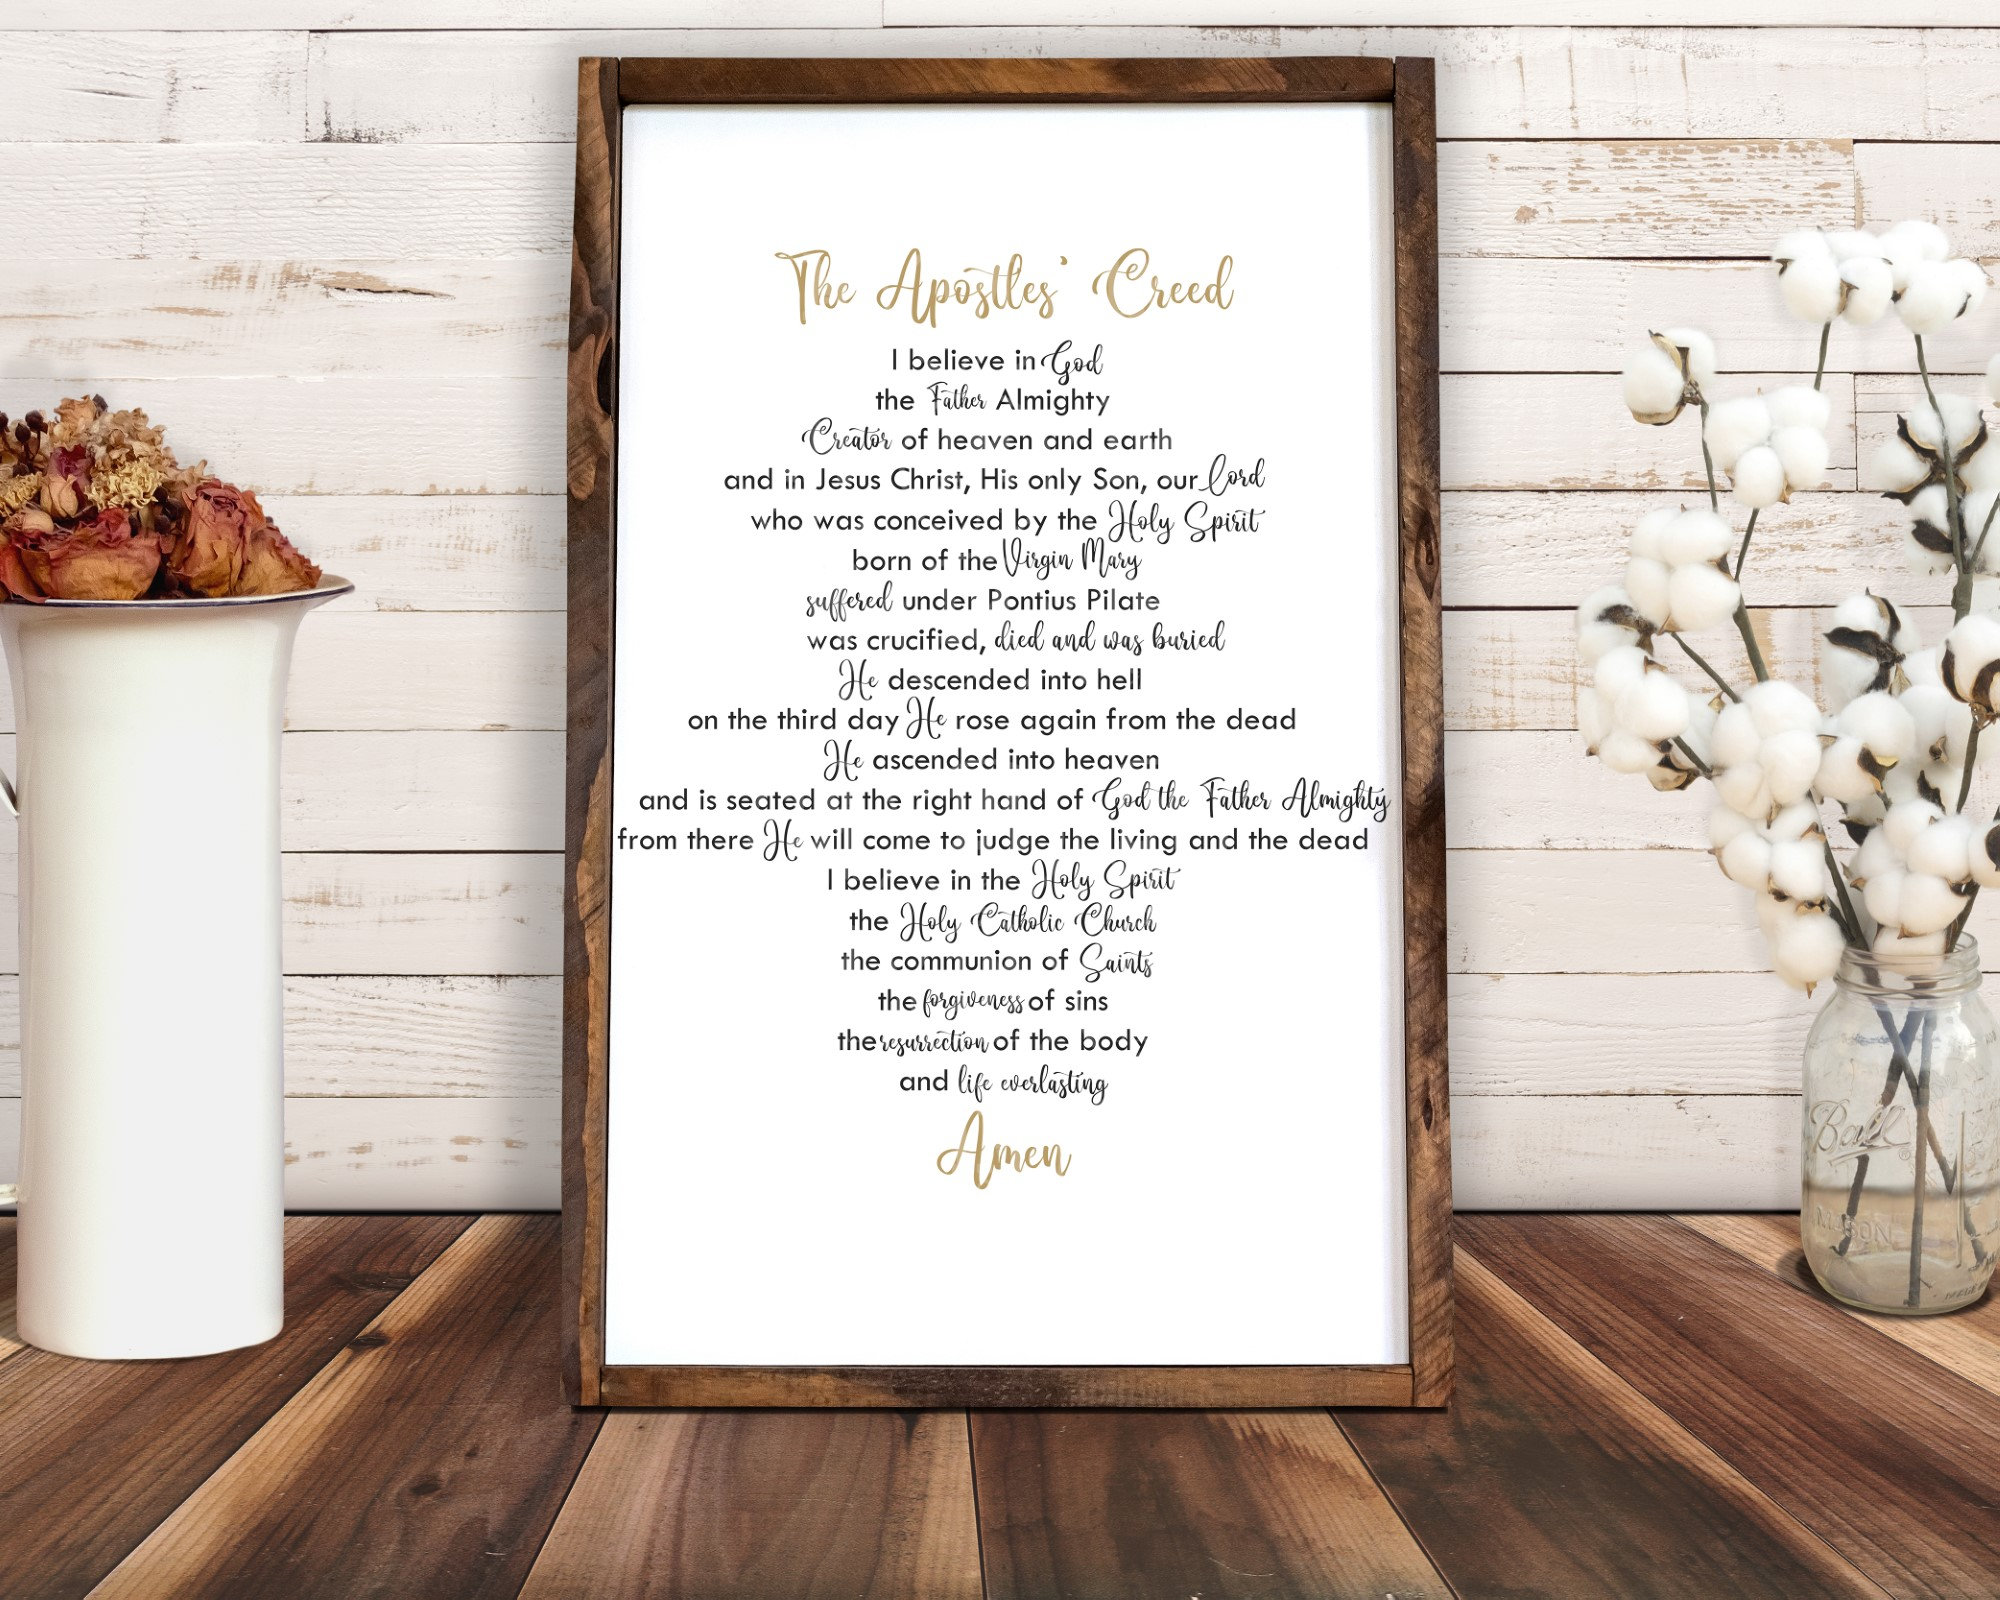 The Apostles' Creed
I believe in God
the Father Almighty
Creator of heaven and earth
and in Jesus Christ, His only Son, our Lord
who was conceived by the Holy Spirit
born of the Virgin Mary
suffered under Pontius Pilate
was crucified, died and was buried
He descended into hell
on the third day He rose again from the dead
He ascended into heaven
and is seated at the right hand of God the Father Almighty
from there He will come to judge the living and the dead
I believe in the Holy Spirit
the Holy Catholic Church
the communion of Saints
the forgiveness of sins
the resurrection of the body
and life everlasting
Amen
Ball
MASON